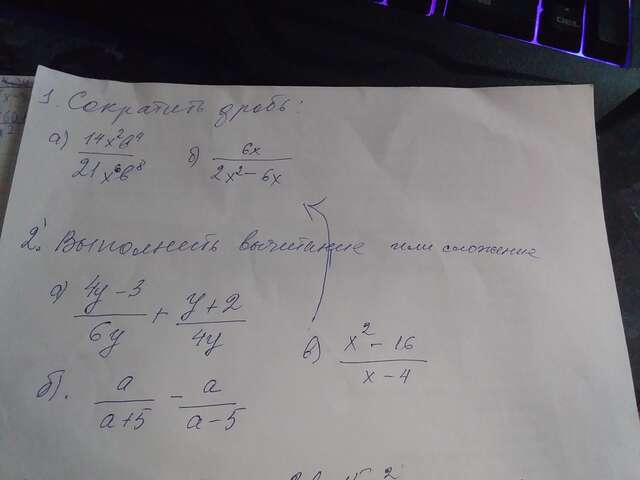 1. Сократить дробь:
а) 14x²b⁴/21x⁶b⁸ б) 6x/2x²-6x
2. Выполнить вычитание или сложение
а) 4y-3/6y + y+2/4y
в) x²-16/x-4
б). a/a+5 - a/a-5